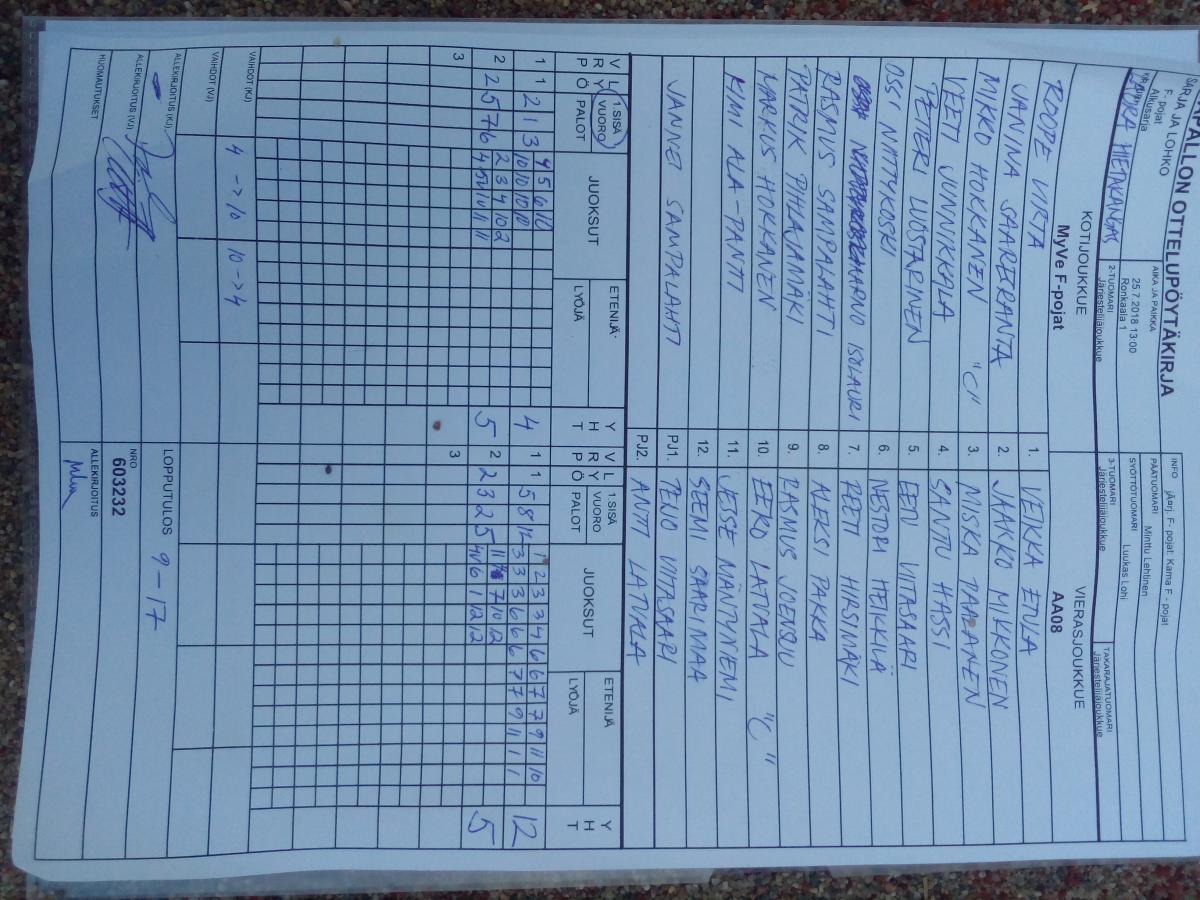 PALLON OTTELUPÖYTÄKIRJA
SARJA JA LOHKO
F- pojat
Alkusarja
AIKA JA PAIKKA
25.7.2018 13:00
Ronkaala 1
INFO järj. F- pojat: Kama F - pojat
PÄÄTUOMARI Minttu Lehtinen
SYÖTTÖTUOMARI Luukas Lohi
HIETAKANGAS
2-TUOMARI
Järjestelijäjoukkue
3-TUOMARI
Järjestelijäjoukkue
TAKARAJATUOMARI
Järjestelijäjoukkue
KOTIJOUKKUE
MyVe F-pojat
VIERASJOUKKUE
AA08
ROOPE VIRTA 1. VEIKKA ETULA
JANINA SAARERANTA 2. JAAKKO MIKKONEN
MIKKO HOKKANEN "C" 3. NISKA TAALANEN
VEETI JUNNIKKALA 4. SANTU HASSI
PETERI LUOSTARINEN 5. EEN VIITASAARI
OSSI NIITTYKOSKI 6. NESTORI HEIKKILÄ
AARVO ISOLAURI 7. PEETI HIRSIMÄKI
RASMUS SAMPALAHTI 8. ALEKSI PAKKA
PATRIK PIHLAJAMÄKI 9. RASMUS JOENSUU
MARKUS HOKKANEN 10. EERO LATVALA "C"
KIMI ALA-PANTI 11. JESSE NÄNTYNIEMI
12. SEEMI SAARIMAA
JANNE SAMPALAHTI PJ1. TEIJO VIITASAARI
PJ2. ANTTI LATVALA
V R P L Y Ö 1.SISÄ VUORO PALOT JUOKSUT ETENIJÄ- LYÖJÄ Y H T V R P L Y Ö 1.SISÄ VUORO PALOT JUOKSUT ETENIJÄ LYÖJÄ Y H T
1 1 2 1 3 4 5 6 10 4 1 1 5 8 12 1 2 3 3 4 6 6 7 7 9 11 10 12
10 10 10 10 3 3 3 6 6 6 7 7 9 11 1 1
2 2 5 7 6 2 3 4 10 2 5 2 2 3 2 5 11 7 10 2 5
4 5 10 11 11 4 6 1 12 12
3 3
VAIHDOT (KJ) 4 -> 10 10 -> 4
VAIHDOT (VJ)
ALLEKIRJOITUS (KJ)
LOPPUTULOS 9 - 17
ALLEKIRJOITUS (VJ)
NRO
603232
HUOMAUTUKSET
ALLEKIRJOITUS